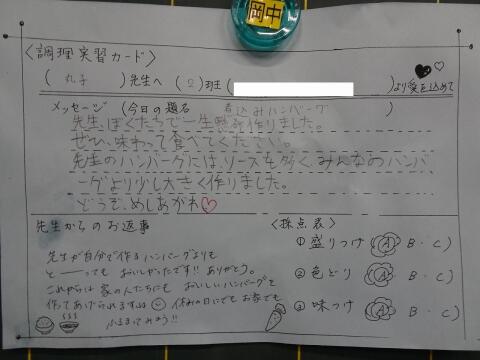 岡中
〈調理実習カード〉
(丸子)先生へ (2)班( )より愛を込めて
メッセージ (今日の題名 煮込みハンバーグ)
先生、ぼくたちで一生懸命作りました。
ぜひ、味わって食べてください。
先生のハンバーグには、ソースを多く、みんなのハンバ
ーグより少し大きく作りました。
どうぞ、めしあがれ♡
先生からのお返事
先生が自分で作るハンバーグよりも
と――っても おいしかったです!! ありがとう。
これからは 家の人たちにも おいしいハンバーグを
作ってあげられますね 休みの日にでも お家でも
ふるまってみよう!!
〈採点表〉
①盛りつけ (A B・C)
②色どり (A B・C)
③味つけ (A B・C)